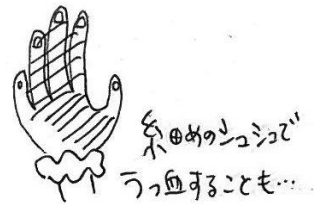 糸田めのシュシュで
うっ血することも…